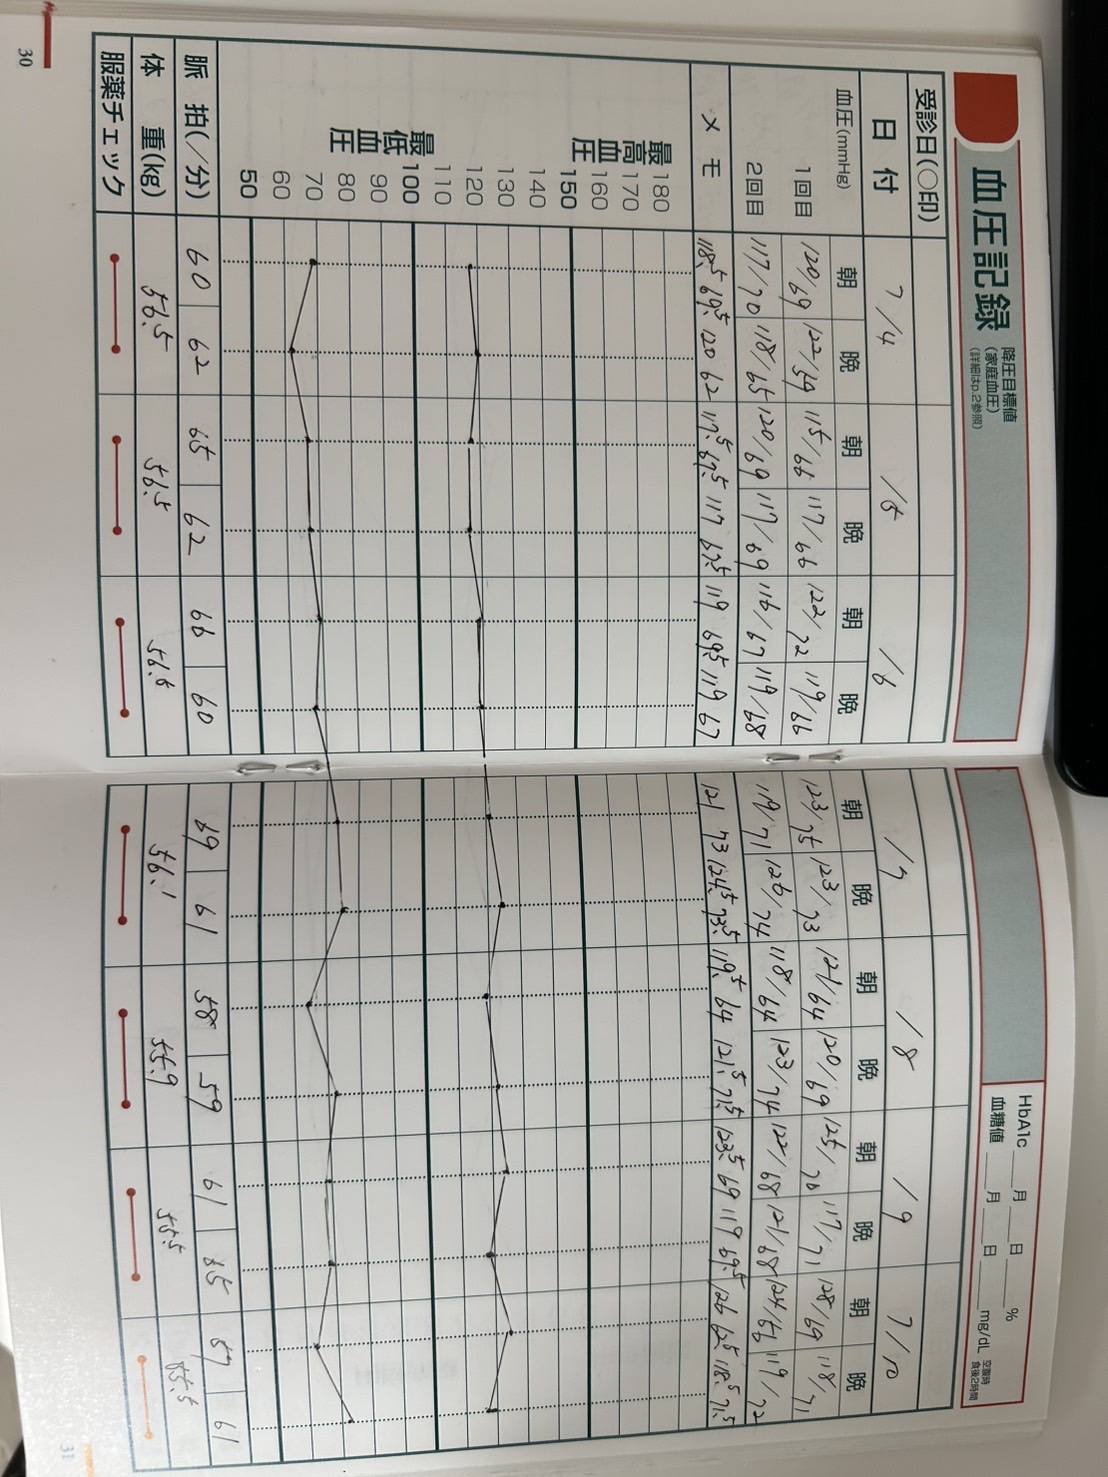 血圧記録
降圧目標値
(家庭血圧)
(詳細はp.2参照)
HbA1c ___月 ___日 ______%
血糖値 ___月 ___日 ______mg/dL 空腹時 食後2時間
受診日(○印)
日付 7/4 /5 /6 /7 /8 /9 7/10
血圧(mmHg) 朝 晩 朝 晩 朝 晩 朝 晩 朝 晩 朝 晩 朝 晩
1回目 120/69 122/59 115/66 117/66 122/72 119/66 123/75 123/73 121/64 120/69 125/70 117/71 128/69 118/71
2回目 117/70 118/65 120/69 117/69 116/67 119/68 119/71 126/74 118/64 123/74 122/68 121/68 124/ 119/72
メモ 118.5 69.5 120 62 117.5 67.5 117 67.5 119 69.5 119 67 121 73 124.5 73.5 119.5 64 121.5 71.5 123.5 69 119 69.5 126 118.5 71.5
最高血圧
180
170
160
150
140
130
120
110
最低血圧
100
90
80
70
60
50
脈拍(/分) 60 62 65 62 66 60 69 61 58 59 61 61
体重(kg) 56.5 56.5 56.1 55.9 55.5 55.5
服薬チェック
30
31